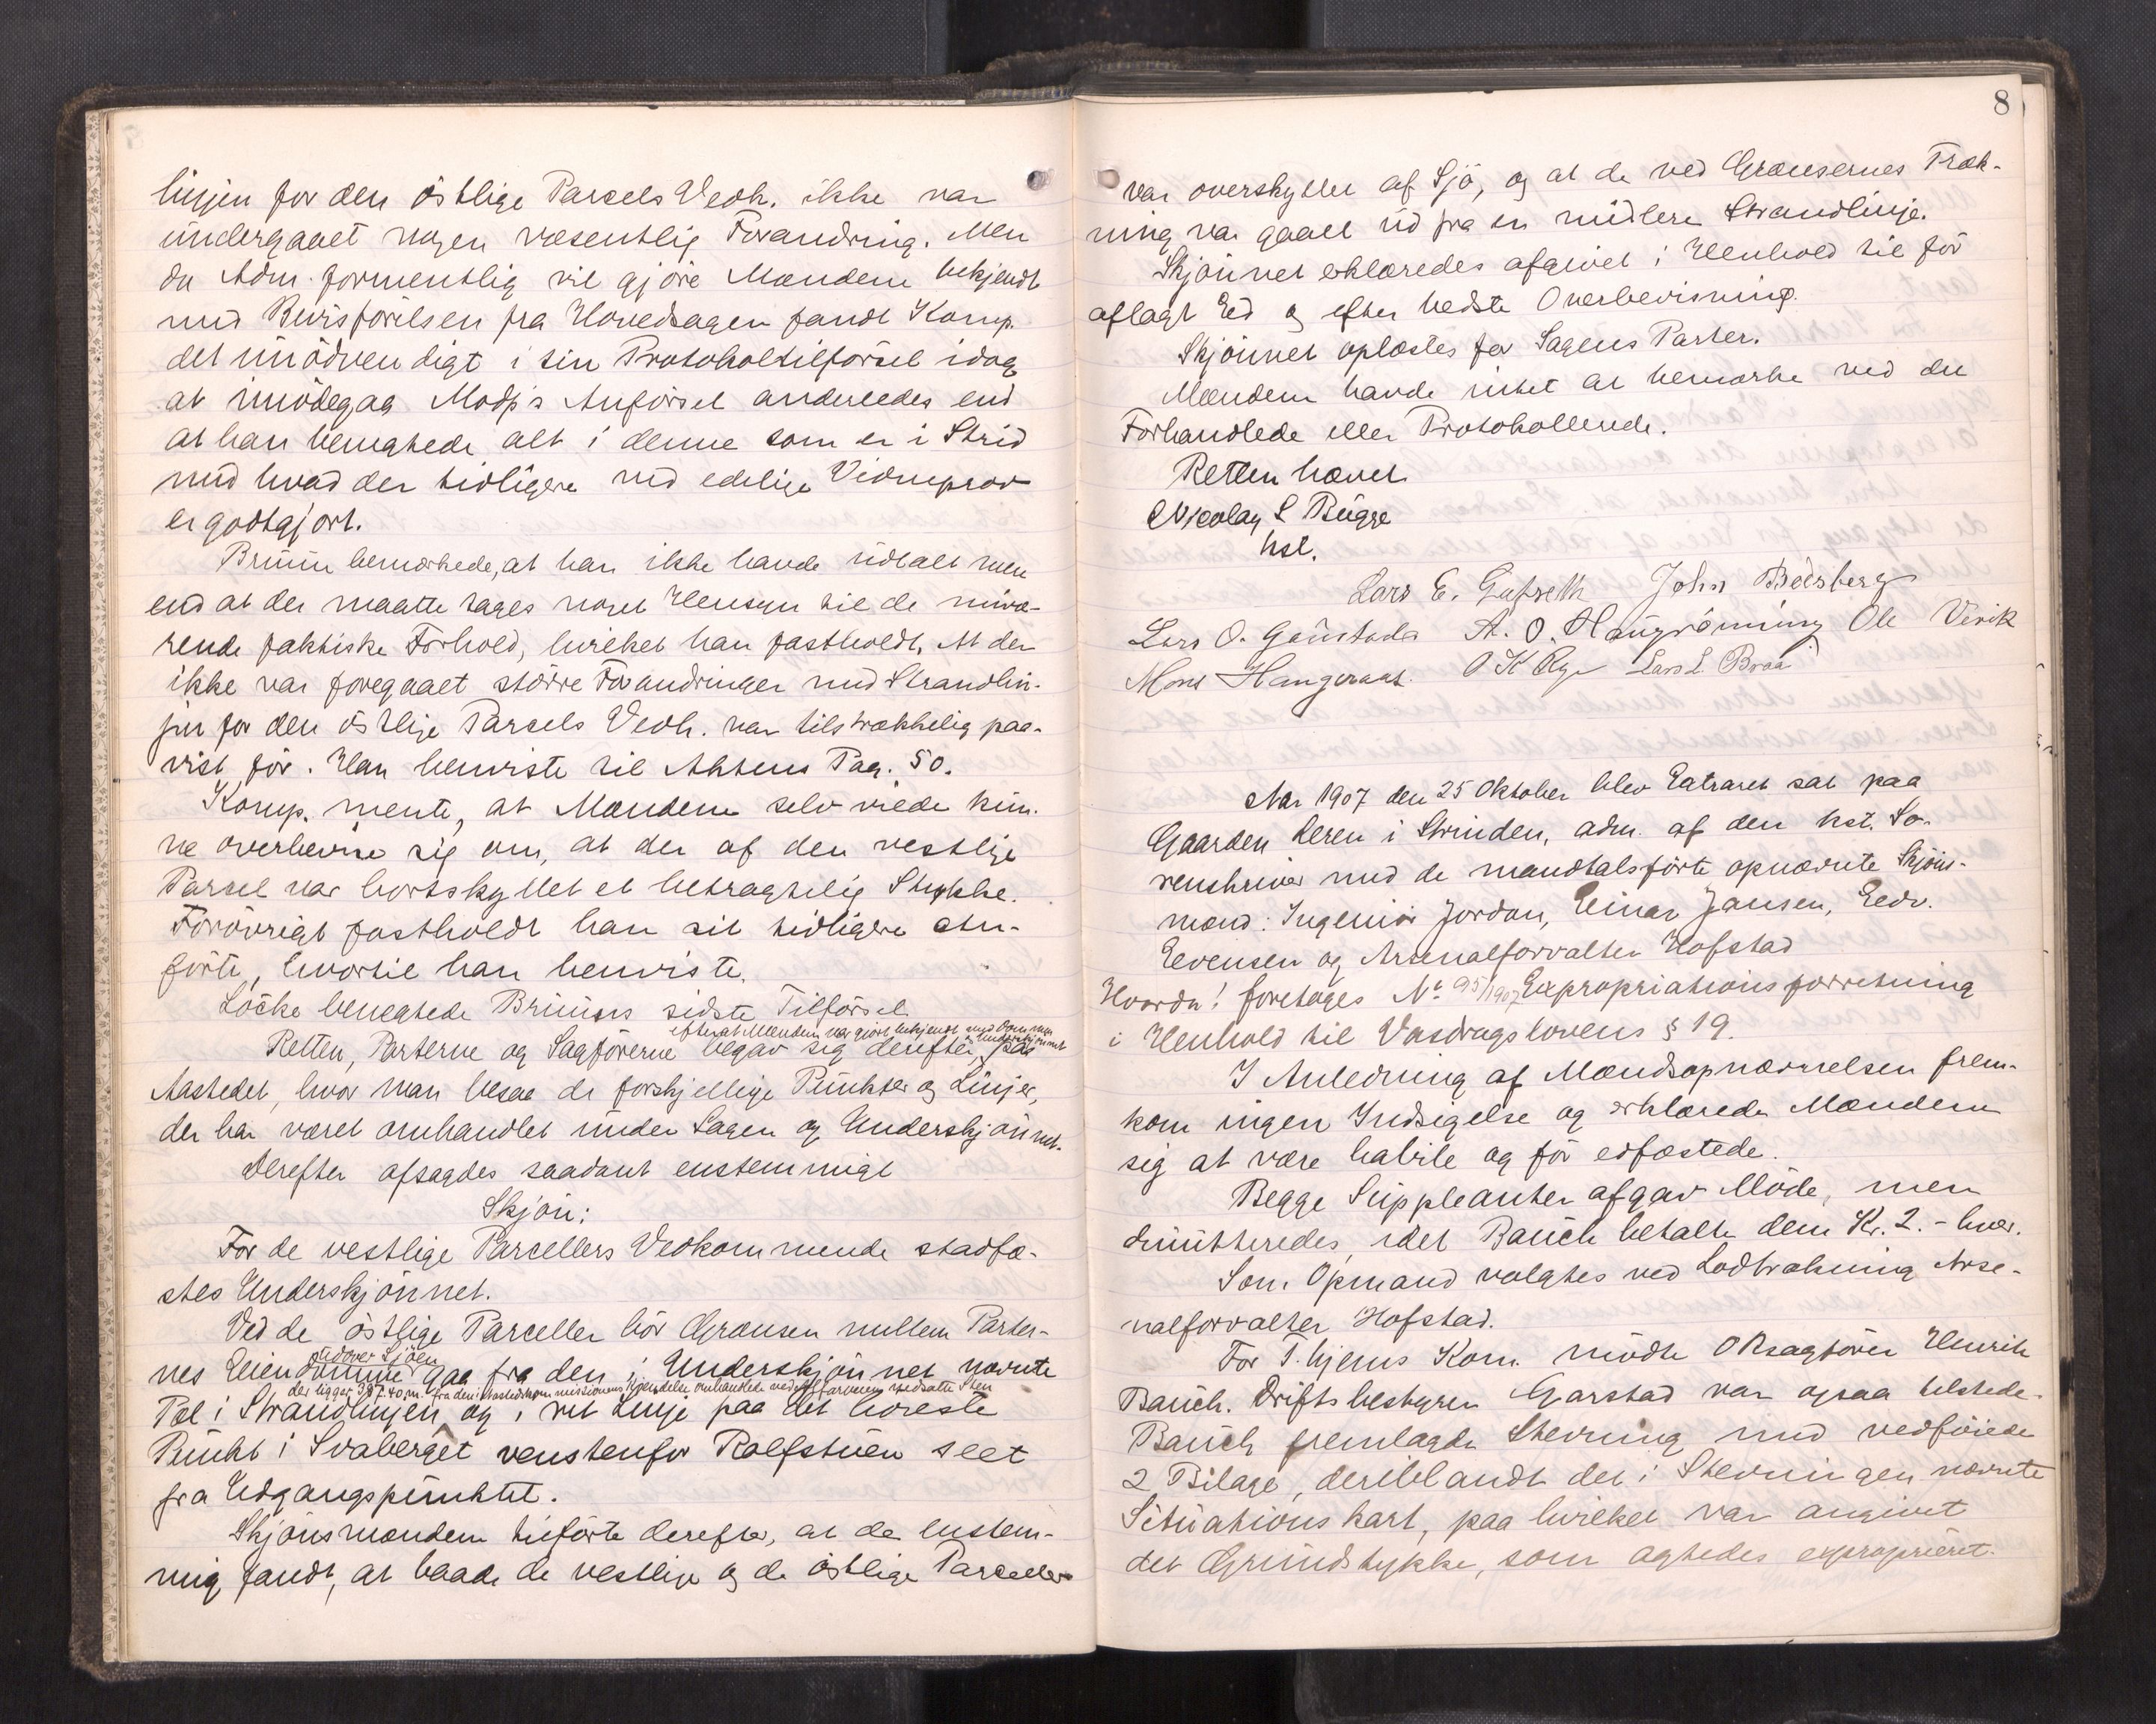 linjen for den östlige Parcels Vedk. ikke var
undergaaet nogen væsentlig Forandring. Men
da Adm. formentlig vil gjöre Mændene bekjendt
med Bevisförelsen fra Hovedsagen fandt Komp.
det unödvendigt i sin Protokoltilförsel idag
at imödegaa Modp's Anförsel anderledes end
at han benegtede alt i denne som er i Strid
med hvad der tidligere ved edelige Vidneprov
er godtgjort.
Bruun bemerkede, at han ikke havde udtalt mere
end at der maatte tages noget Hensyn til de nuvæ-
rende faktiske Forhold, hvilket han fastholdt. At der
ikke var foregaaet större Forandringer med Strandlin-
jen for den östlige Parcels Vedk. var tilstrækkelig paa-
vist för. Han henviste til Aktens Pag. 50.
Komp. mente, at Mændene selv vilde kun-
ne overbevise sig om, at der af den vestlige
Parcel var bortskyllet et betragtelig Stykke.
Forövrigt fastholdt han sit tidligere An-
förte, hvortil han henviste.
Löcke benegtede Bruuns sidste Tilförsel.
efterat Mændene var gjort bekjendt med Dommen
og Underskjönnet
Retten, Parterne og Sagförerne begav sig derefter paa
Aastedet, hvor man besaa de forskjellige Punkter og Linjer,
der har været omhandlet under Sagen og Underskjönnet.
Derefter afsagdes saadant enstemmigt
Skjön:
For de vestlige Parcellers Vedkommende stadfæ-
stes Underskjönnet.
Ved de östlige Parceller bör Grænsen mellem Parter-
udover Sjöen
nes Eiendomme gaa fra den i Underskjönnet nævnte
der ligger 397.40 m. fra den i Aastedskommissionens Kjendelse omhandlede ved nedsatte Sten
Pæl i Strandlinjen og i ret Linje paa det höieste
Punkt i Svaberget venstenfor Rolfstuen seet
fra Udgangspunktet.
Skjönsmændene tilförte derefter, at de enstem-
mig fandt, at baade de vestlige og de östlige Parceller
8
var overskyllet af Sjö, og at de ved Grænsernes Træk-
ning var gaaet ud fra en midlere Strandlinje.
Skjönnet erklæredes afgivet i Henhold til för
aflagt Ed og efter bedste Overbevisning.
Skjönnet oplæstes for Sagens Parter.
Mændene havde intet at bemærke ved det
Forhandlede eller Protokollerede.
Retten hævet.
Nicolay S Bugge
kst.
Lars E. John
Lars O. A. O. Haugrönning Ole Vivik
Mons Haugeraas. O K Rye Lars L. Braa
Aar 1907 den 25 Oktober blev Extraret sat paa
Gaarden Leren i Strinden, adm. af den kst. So-
renskriver med de mandtalsförte opnævnte Skjöns-
mænd: Ingeniör Jordan, Einar Jansen, Edv.
Evensen og Arsenalforvalter Hofstad
Hvorda! foretoges No 95/1907 Expropriationsforretning
i Henhold til Vasdragslovens § 19.
I Anledning af Mændsopnævnelsen frem-
kom ingen Indsigelse og erklærede Mændene
sig at være habile og för edfæstede.
Begge Suppleanter afgav Möde, men
dimitteredes, idet Bauck betalte dem Kr. 2.- hver.
Som Opmand valgtes ved Lodtrækning Arse-
nalforvalter Hofstad.
For T.hjems Kom. mödte ORsagförer Henrik
Bauck. Driftsbestyrer Garstad var ogsaa tilstede.
Bauck fremlagde Stevning med vedföiede
2 Bilage, deriblandt det i Stevningen nævnte
Situationskart, paa hvilket var angivet
det Grundstykke, som agtedes exproprieret.